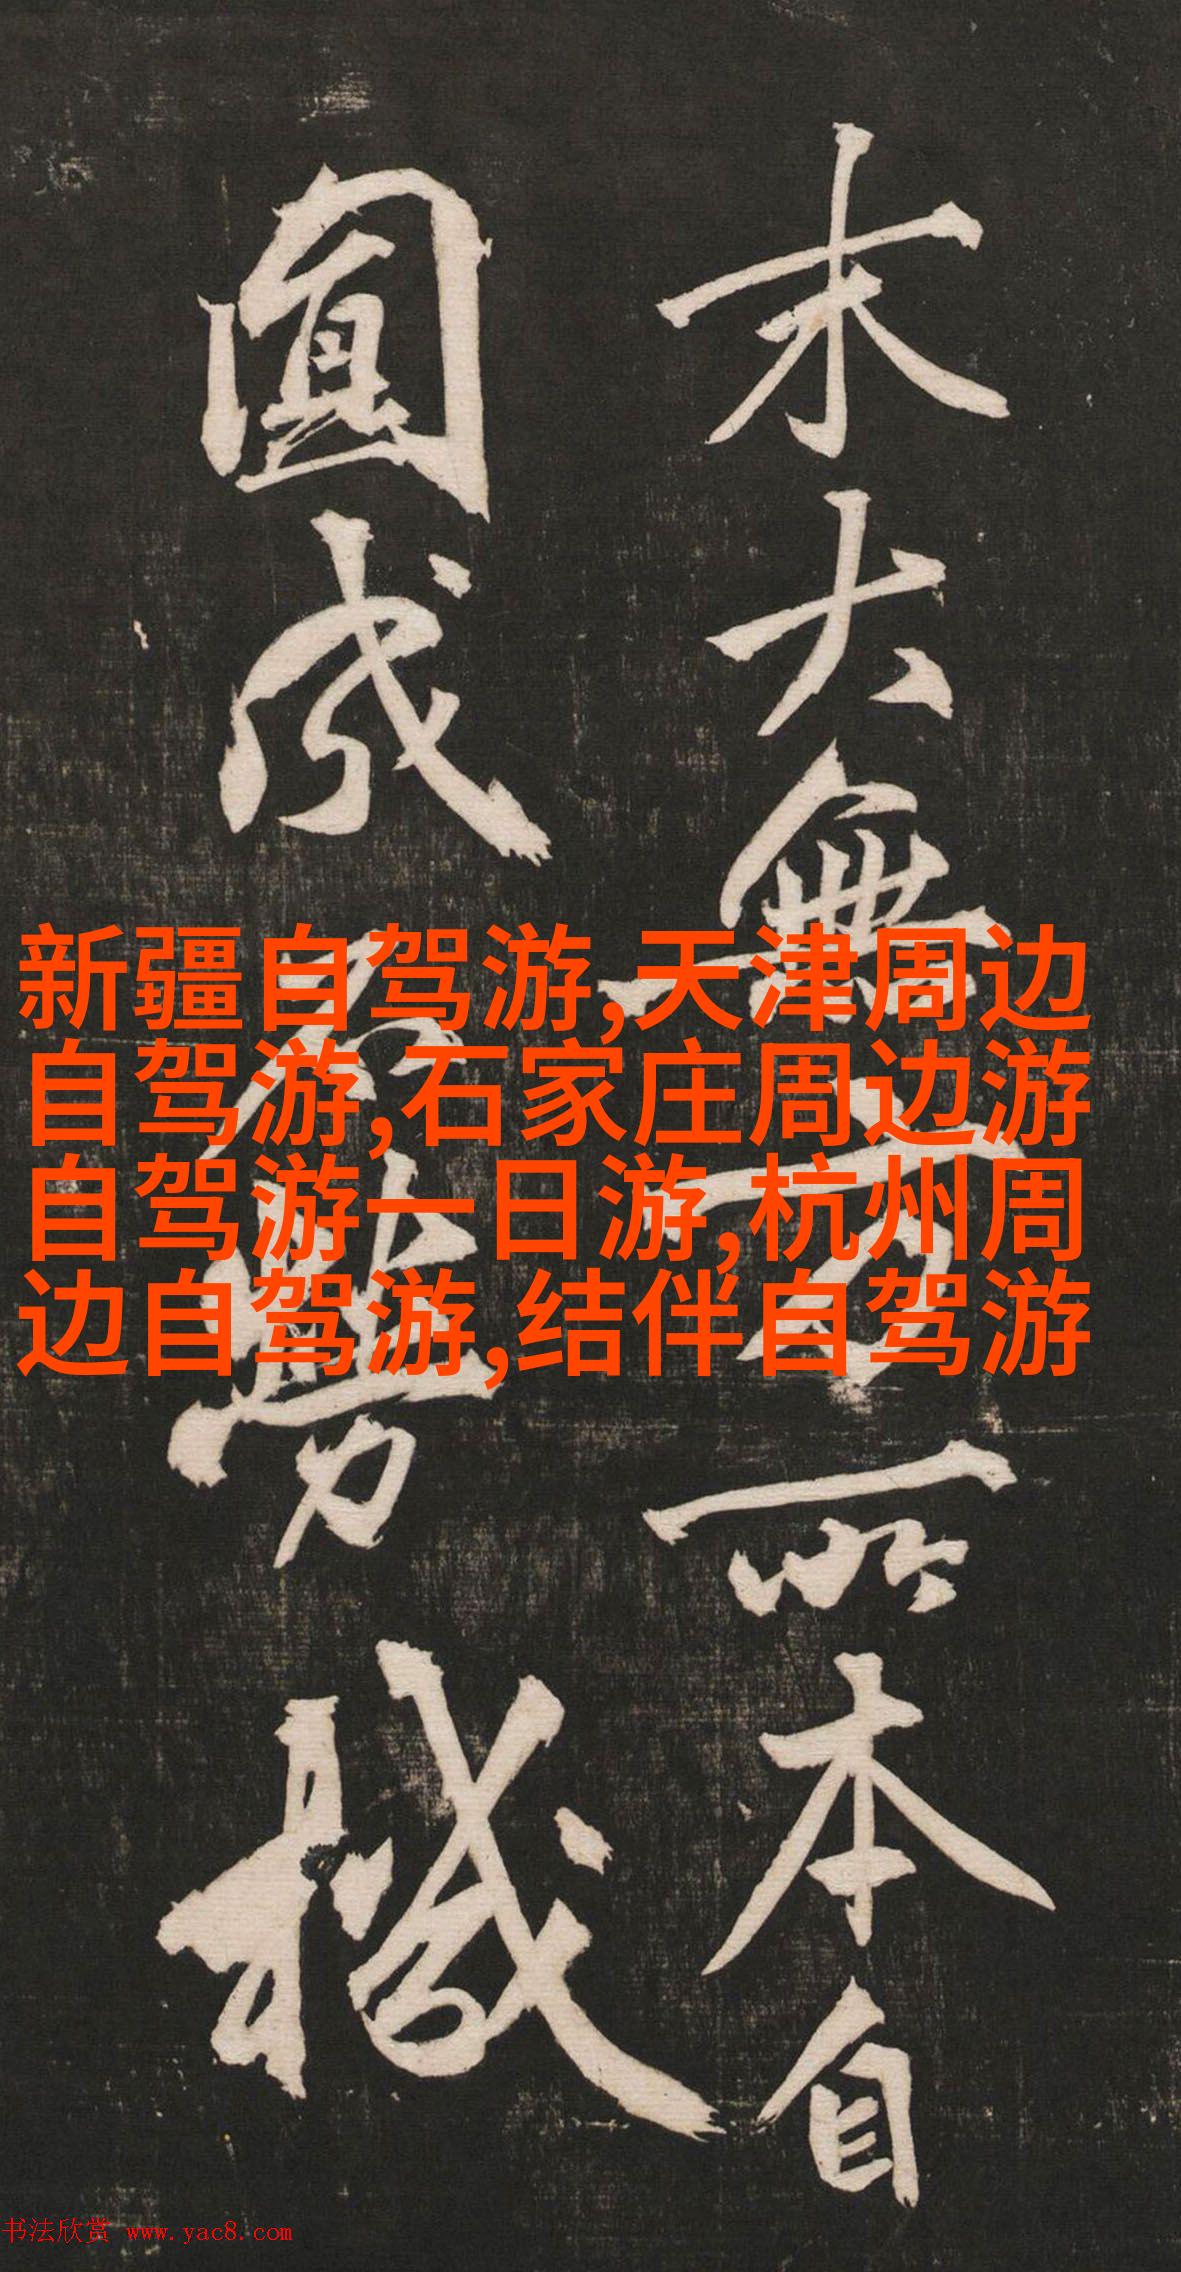 大無方所本自
圓成不勞機
新疆自驾游,天津周边
自驾游,石家庄周边游
自驾游一日游,杭州周
边自驾游,结伴自驾游
书法欣赏 www.yac8.com